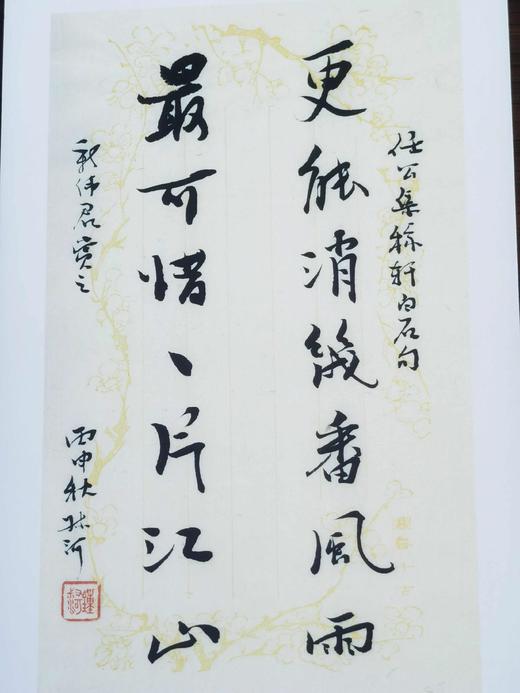 任公集稼軒白石句
更能消幾番風雨
最可惜一片江山
偉君賞之
丙申秋